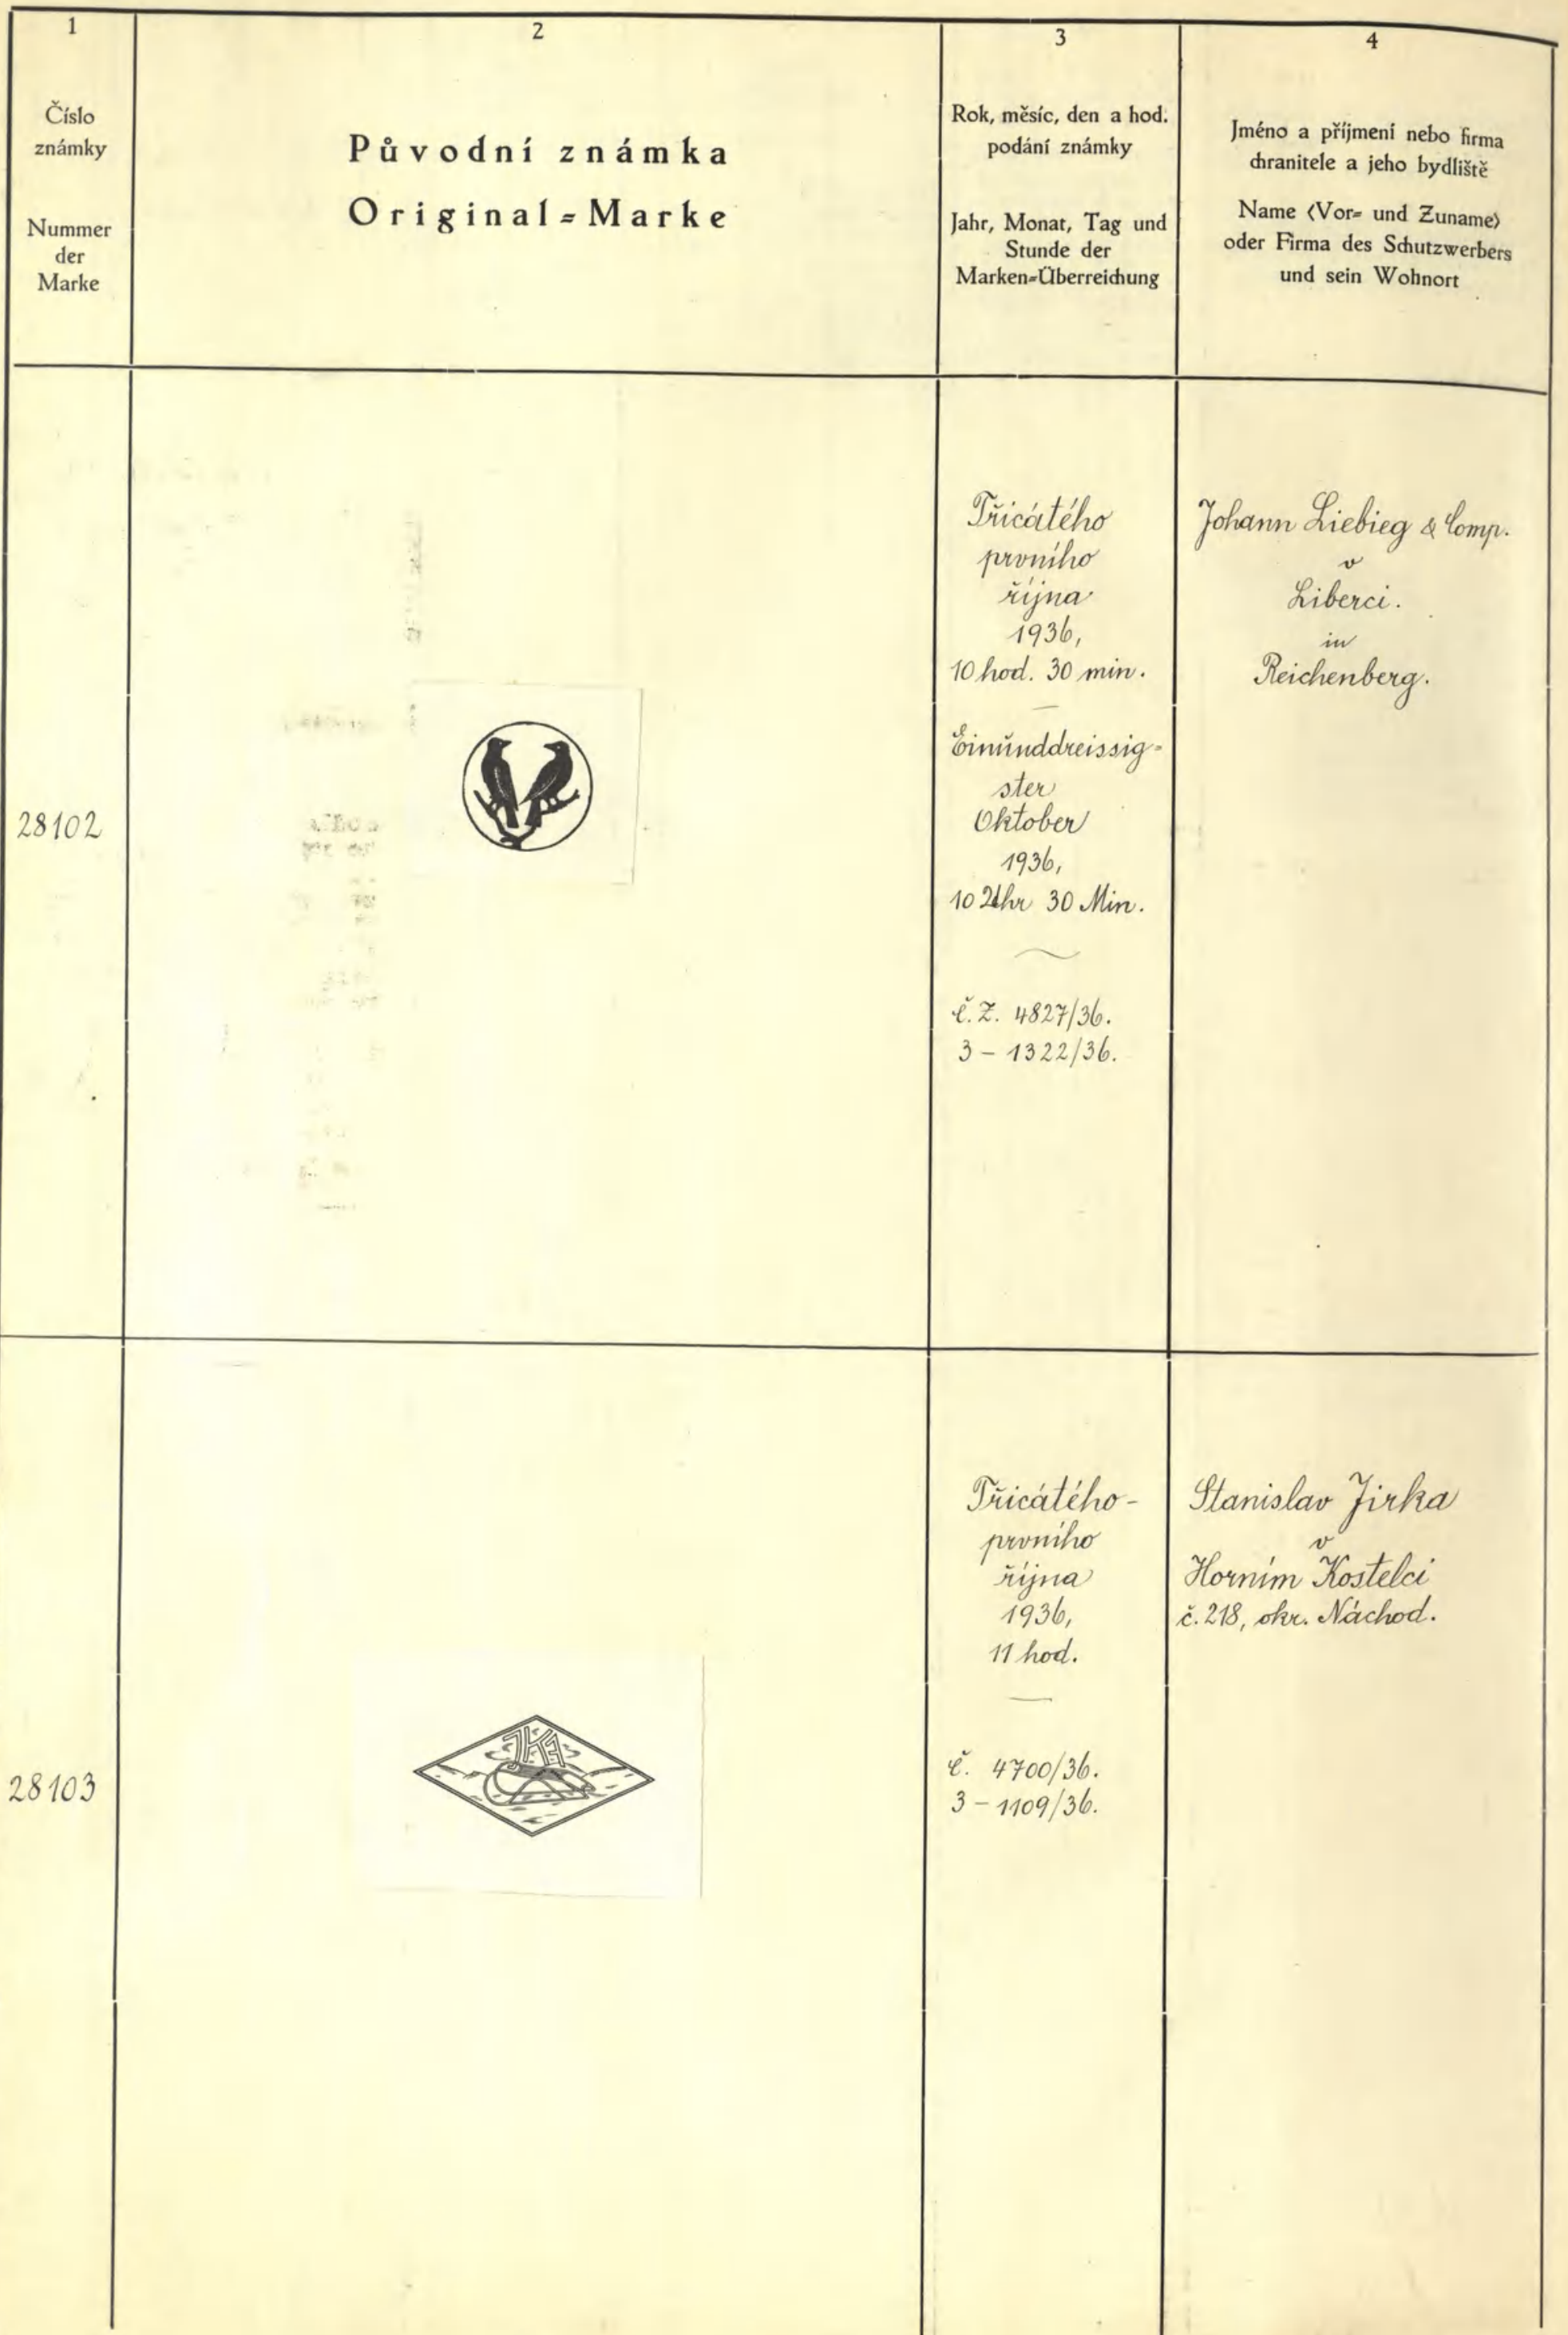 1
Číslo
známky
Nummer
der
Marke
2
Původní známka
Original=Marke
3
Rok, měsíc, den a hod.
podání známky
Jahr, Monat, Tag und
Stunde der
Marken=Überreichung
4
Jméno a příjmení nebo firma
chranitele a jeho bydliště
Name (Vor= und Zuname)
oder Firma des Schutzwerbers
und sein Wohnort
28102
Třicátého
prvního
října
1936,
10 hod. 30 min.
Einunddreissig-
ster
Oktober
1936,
10 Uhr 30 Min.
č.Z. 4827/36.
3 – 1322/36.
Johann Liebieg & Comp.
v
Liberci.
in
Reichenberg.
28103
JKA
Třicátého-
prvního
října
1936,
11 hod.
č. 4700/36.
3 – 1109/36.
Stanislav Jirka
v
Horním Kostelci
č. 218, okr. Náchod.